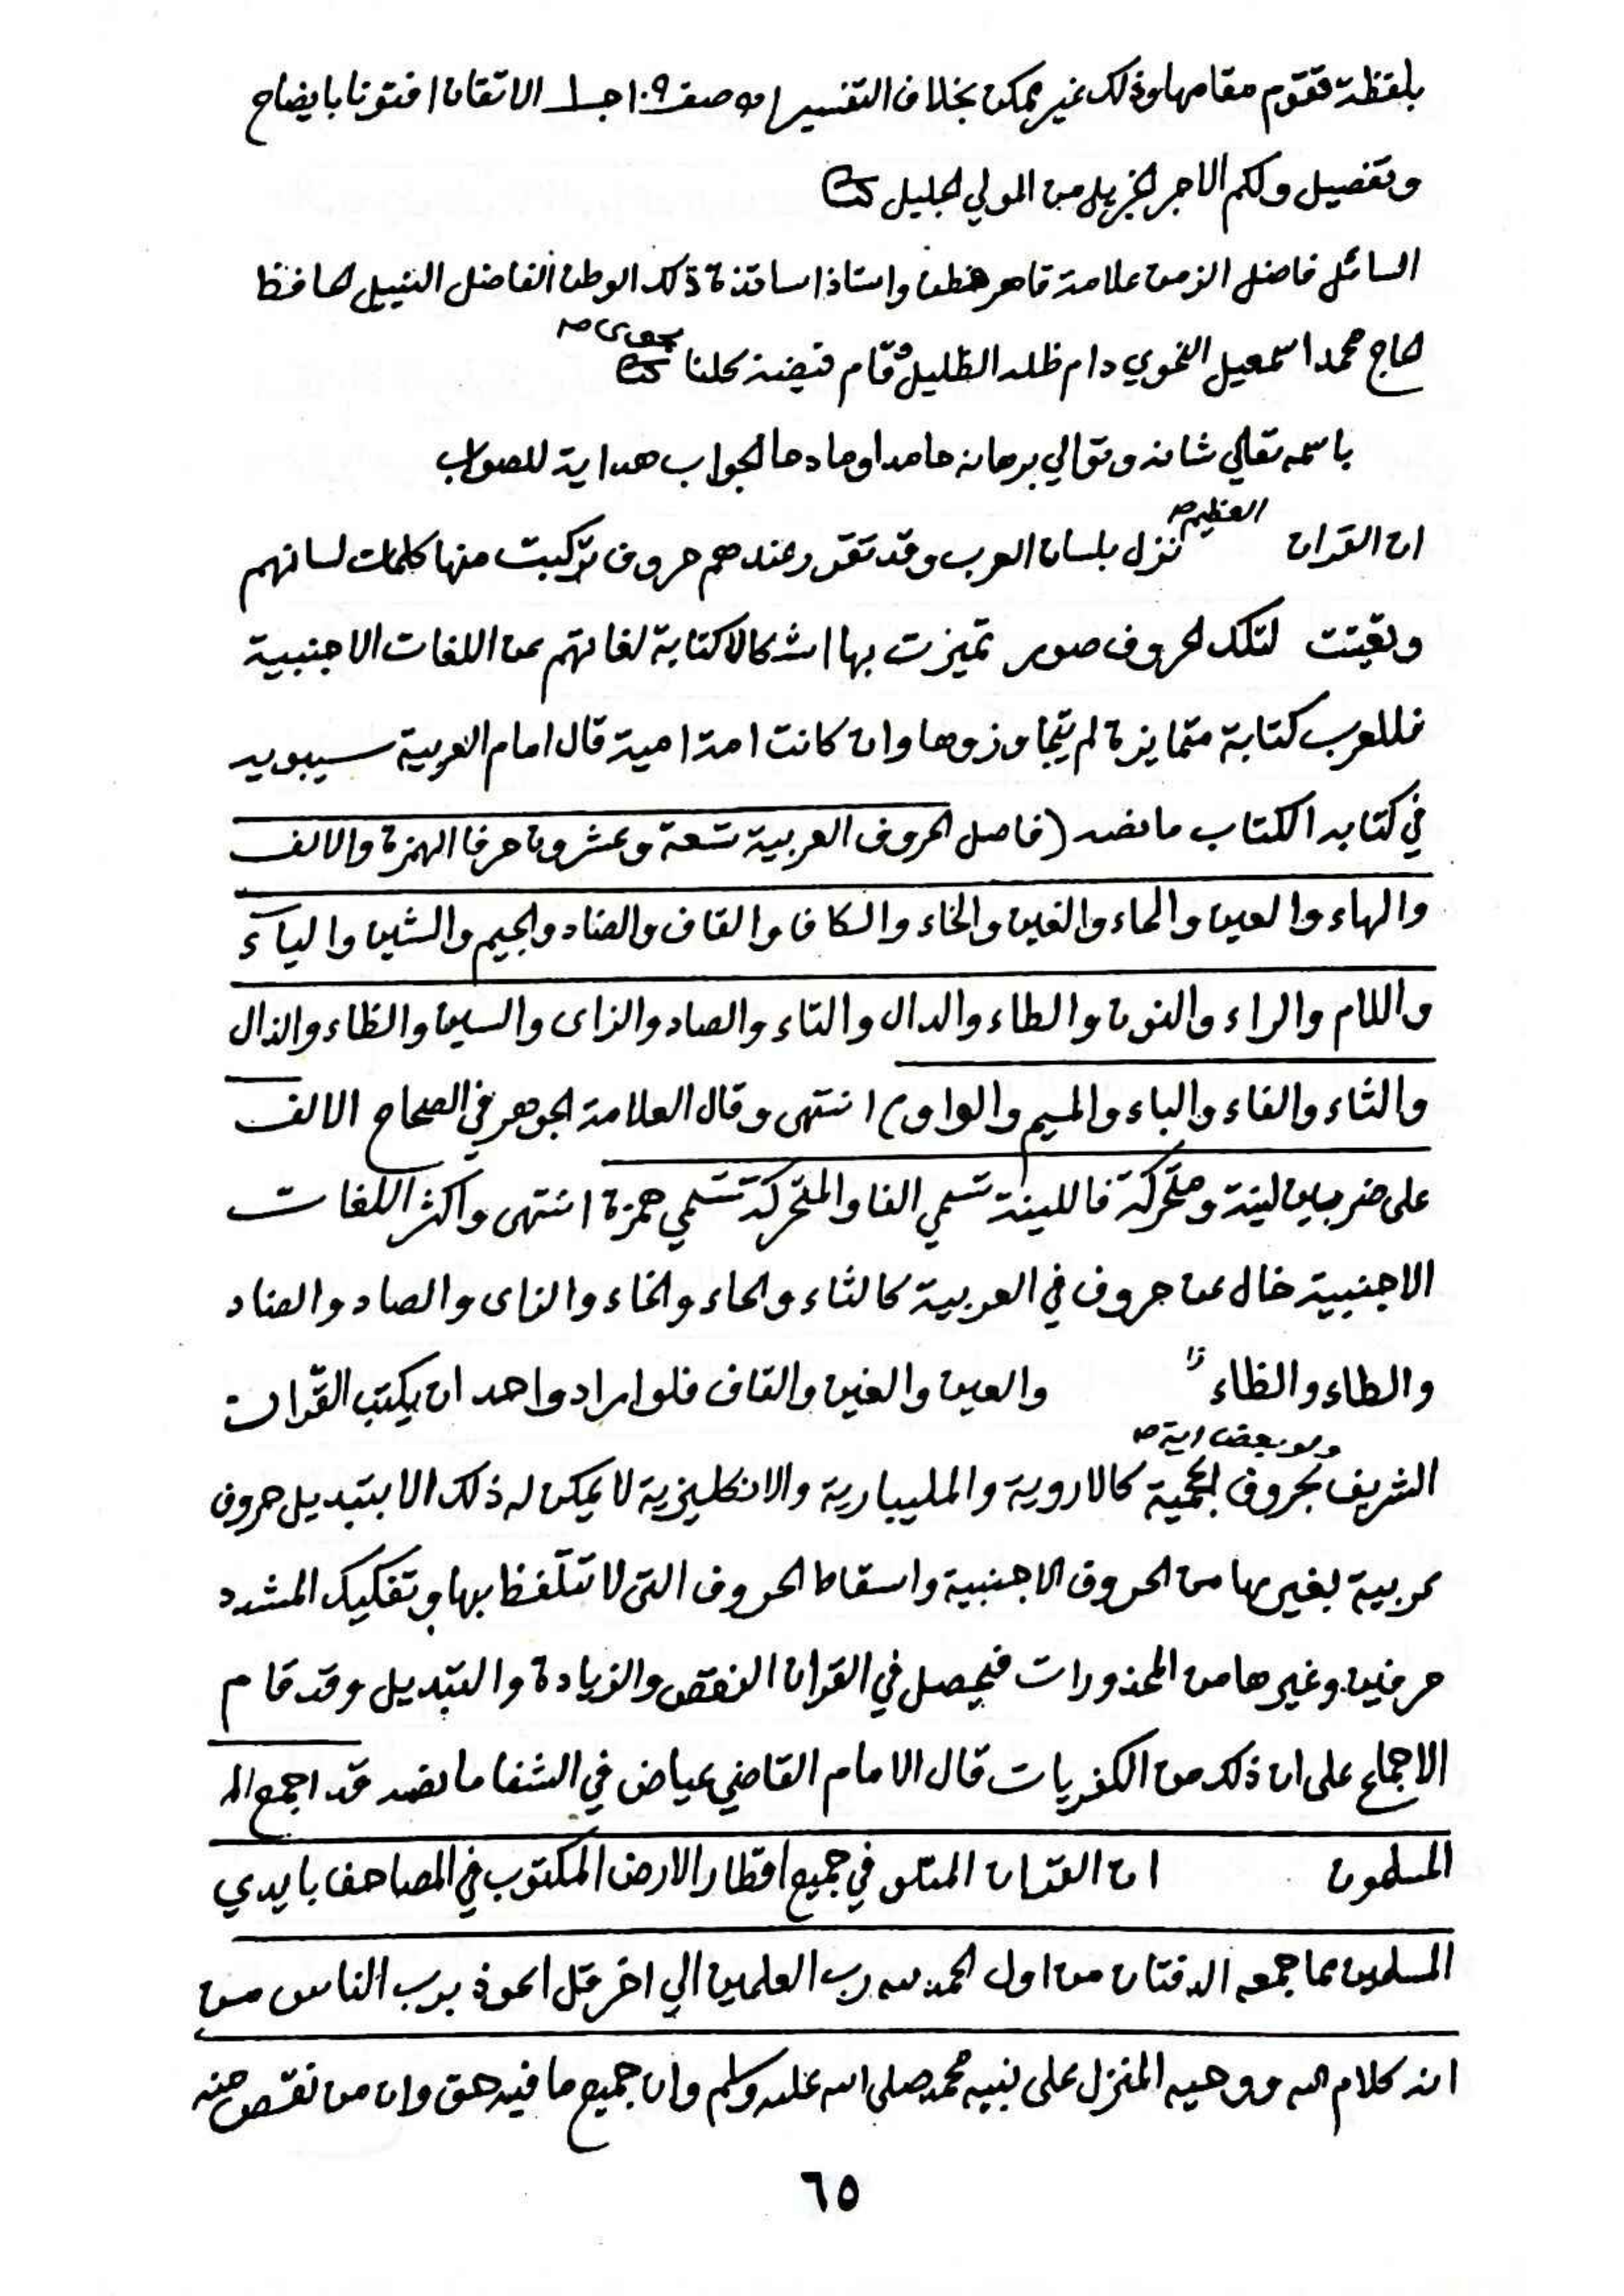 بلفظة تقوم مقامها وذلك غير ممكن بخلاف التفسير اه صف ١٠٩ جـ ١ الاتقان افتونا بايضاح
وتفصيل ولكم الاجر الجزيل من المولي الجليل
السائل فاضل الزمن علامة قاهر فطن واستاذ اساتذة ذلك الوطن الفاضل النبيل الحافظ
الحاج محمد اسمعيل النحوي دام ظله الظليل وقام فيضه كلنا
باسمه تعالي شانه وتوالي برهانه حامدا ومادحا الجواب هداية للصواب
ان القران العظيم نزل بلسان العرب وقد تقرر عندهم حروف تركبت منها كلمات لسانهم
وتعينت لتلك الحروف صور تميزت بها اشكالا كتابة لغاتهم عن اللغات الاجنبية
فللعرب كتابة متمايزة لم يتجاوزوها وان كانت امة امية قال امام العربية سيبويه
في كتابه الكتاب ما نصه (فاصل الحروف العربية تسعة وعشرون حرفا الهمزة والالف
والهاء والعين والحاء والغين والخاء والكاف والقاف والضاد والجيم والشين والياء
واللام والراء والنون والطاء والدال والتاء والصاد والزاى والسين والظاء والذال
والثاء والفاء والباء والميم والواو) انتهى وقال العلامة الجوهر في الصحاح الالف
على ضربين لينة ومتحركة فاللينة تسمي الفا والمتحركة تسمي همزة انتهى واكثر اللغات
الاجنبية خال عن حروف في العربية كالثاء والحاء والخاء والزاى والصاد والضاد
والطاء والظاء والعين والغين والقاف فلو اراد واحد ان يكتب القران
ولو بعض اية
الشريف بحروف اعجمية كالاروية والمليبارية والانكليزية لا يمكن له ذلك الا بتبديل حروف
عربية بغيرها من الحروف الاجنبية واسقاط الحروف التى لا تتلفظ بها وتفكيك المشدد
حرفين وغيرها من المحذورات فيحصل في القران النقص والزيادة والتبديل وقد قام
الاجماع على ان ذلك من الكفريات قال الامام القاضي عياض في الشفا ما نصه قد اجمع الم
المسلمون ان القران المتلو في جميع اقطار الارض المكتوب في المصاحف بايدي
المسلمين مما جمعه الدفتان من اول الحمد لله رب العلمين الي اخر قل اعوذ برب الناس من
انه كلام الله ووحيه المنزل على نبيه محمد صلى الله عليه وسلم وان جميع ما فيه حق وان من نقص منه
٦٥